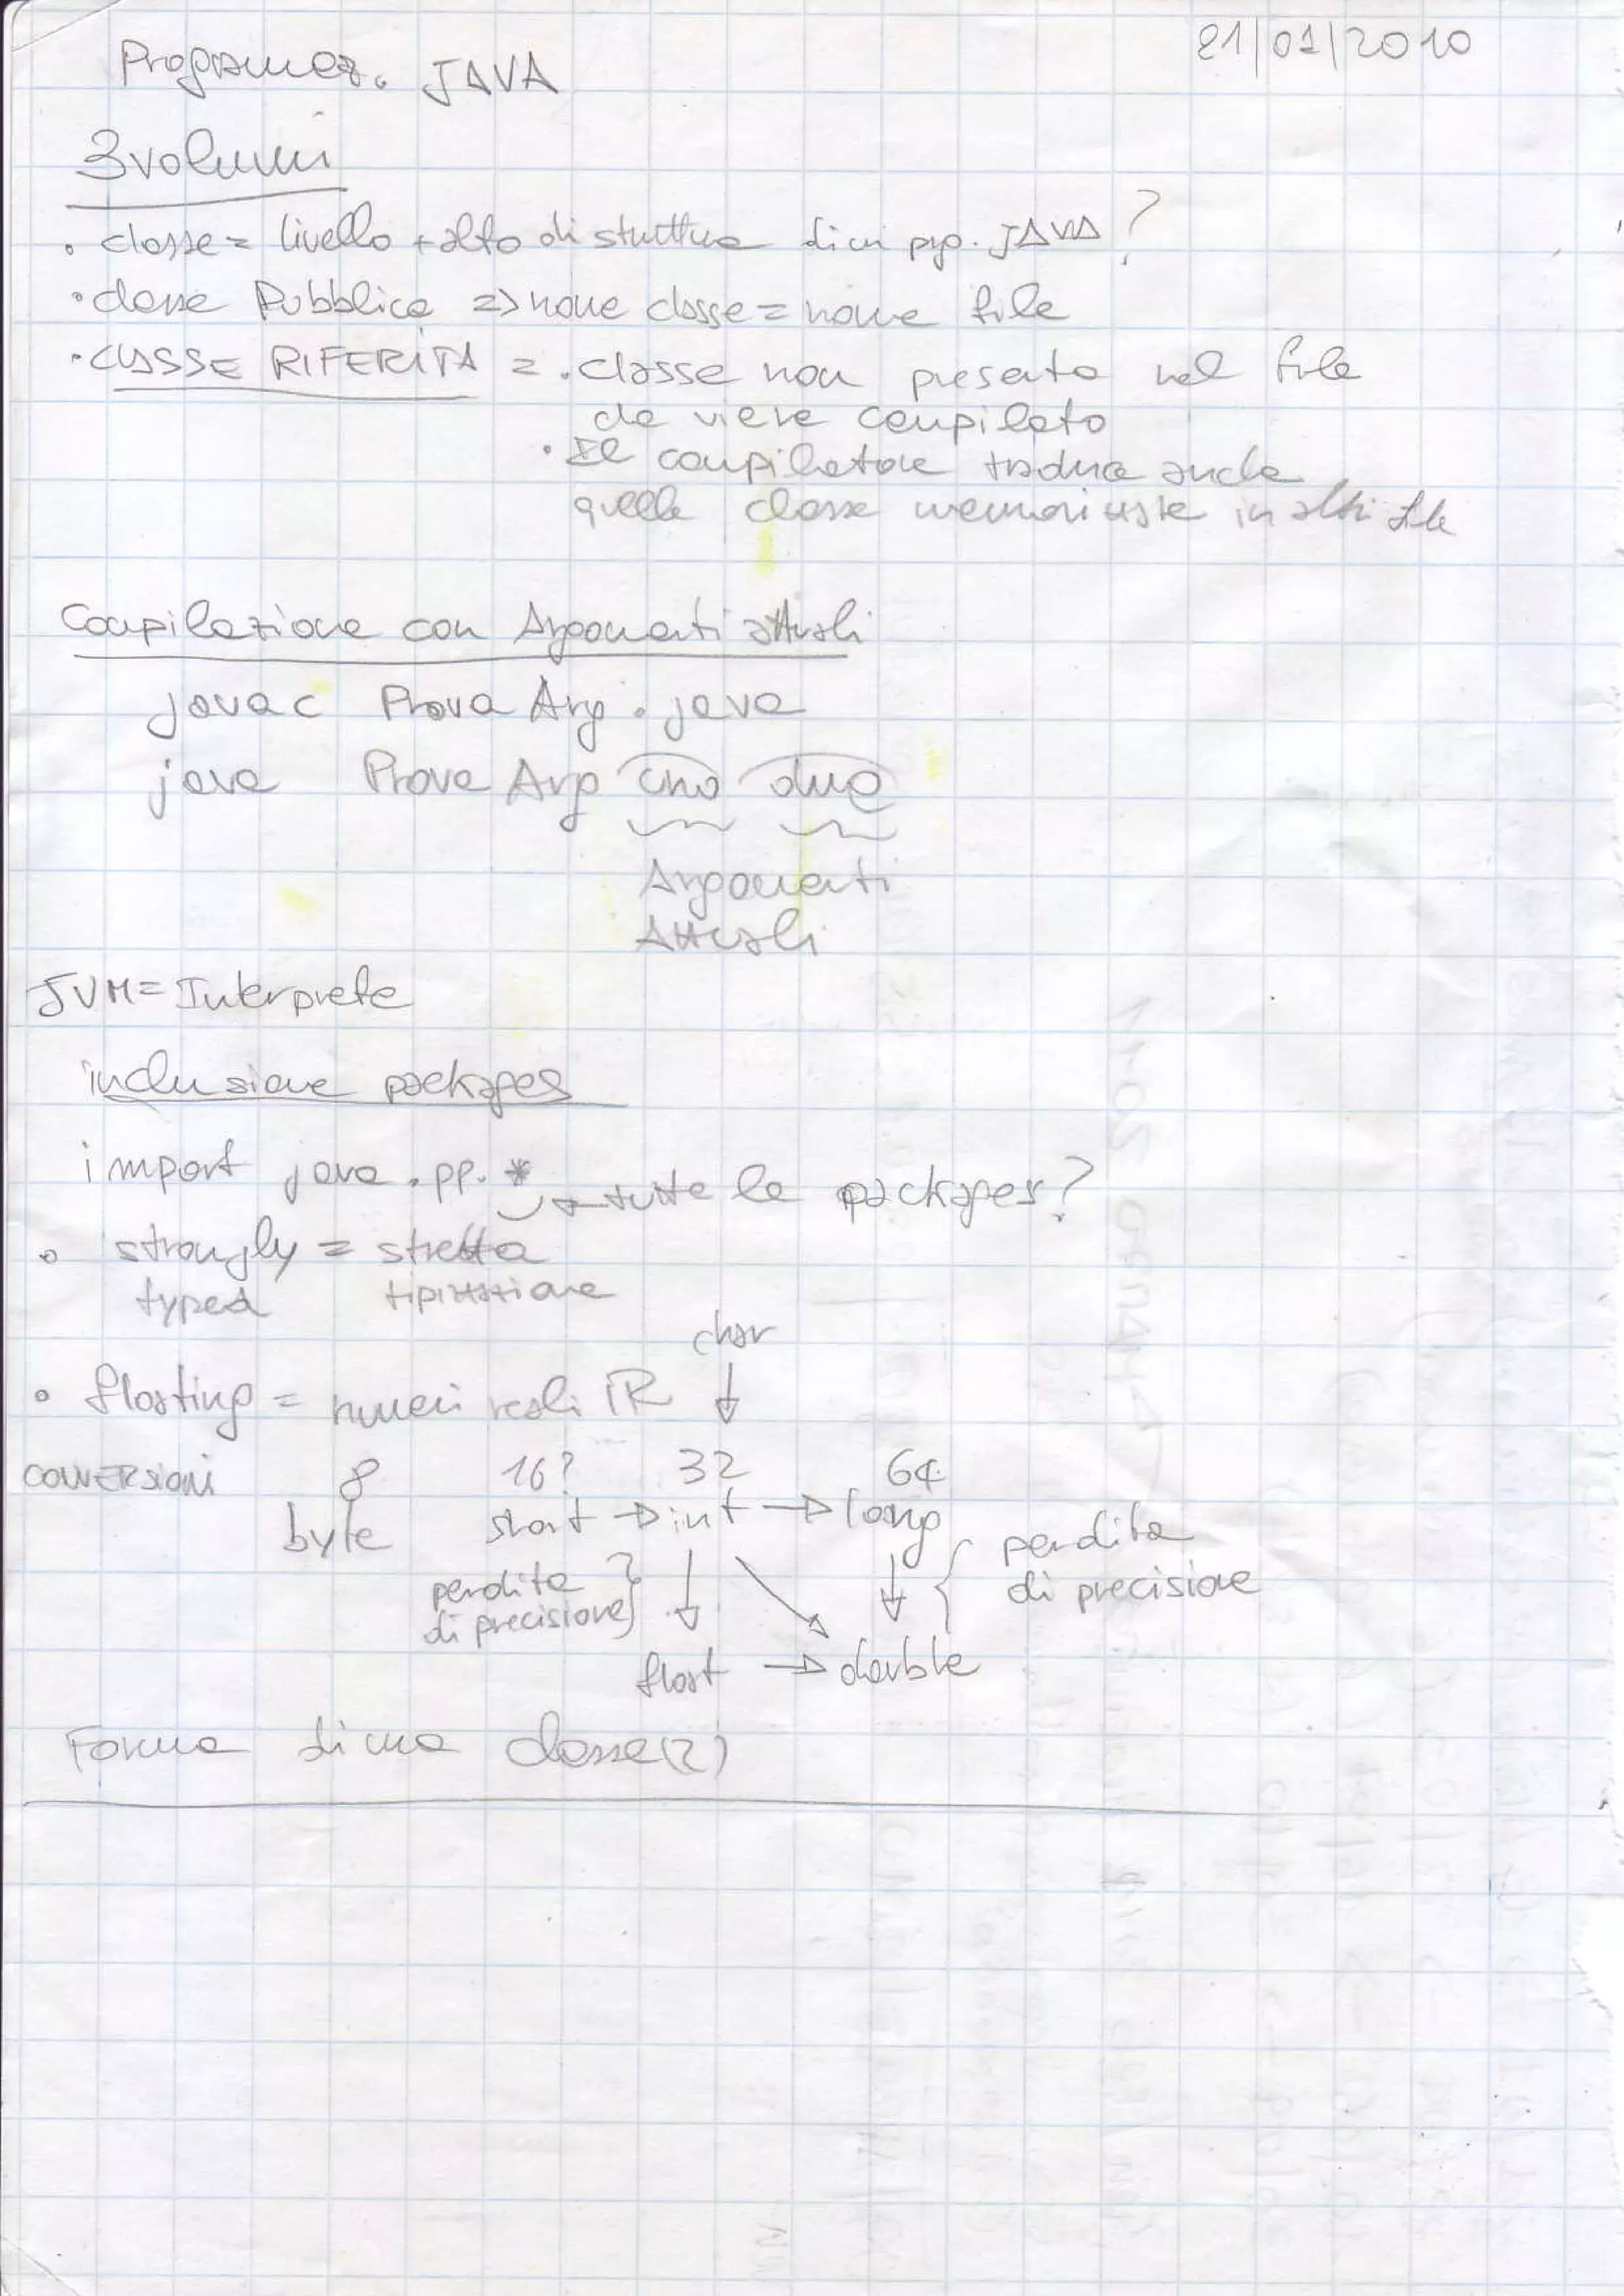 21/01/2010
Programmaz. JAVA
3 volumi
• classe = livello + alto di struttura di un prg. JAVA ?
• classe Pubblica => nome classe = nome file
• CLASSE RIFERITA = • classe non presente nel file
che viene compilato
• Il compilatore traduce anche
quelle classe memorizzate in altri file
Compilazione con Argomenti attuali
javac ProvaArg.java
java ProvaArg uno due
Argomenti
Attuali
JVM = Interprete
inclusione packages
import java.pp.* → tutte le packages?
• strongly = stretta
typed tipizzazione
char
• floating = numeri reali IR ↓
CONVERSIONI 8 16? 32 64
byte short → int → long
perdita di precisione } ↓ ↘ ↓ { perdita di precisione
float → double
Forma di una classe(2)